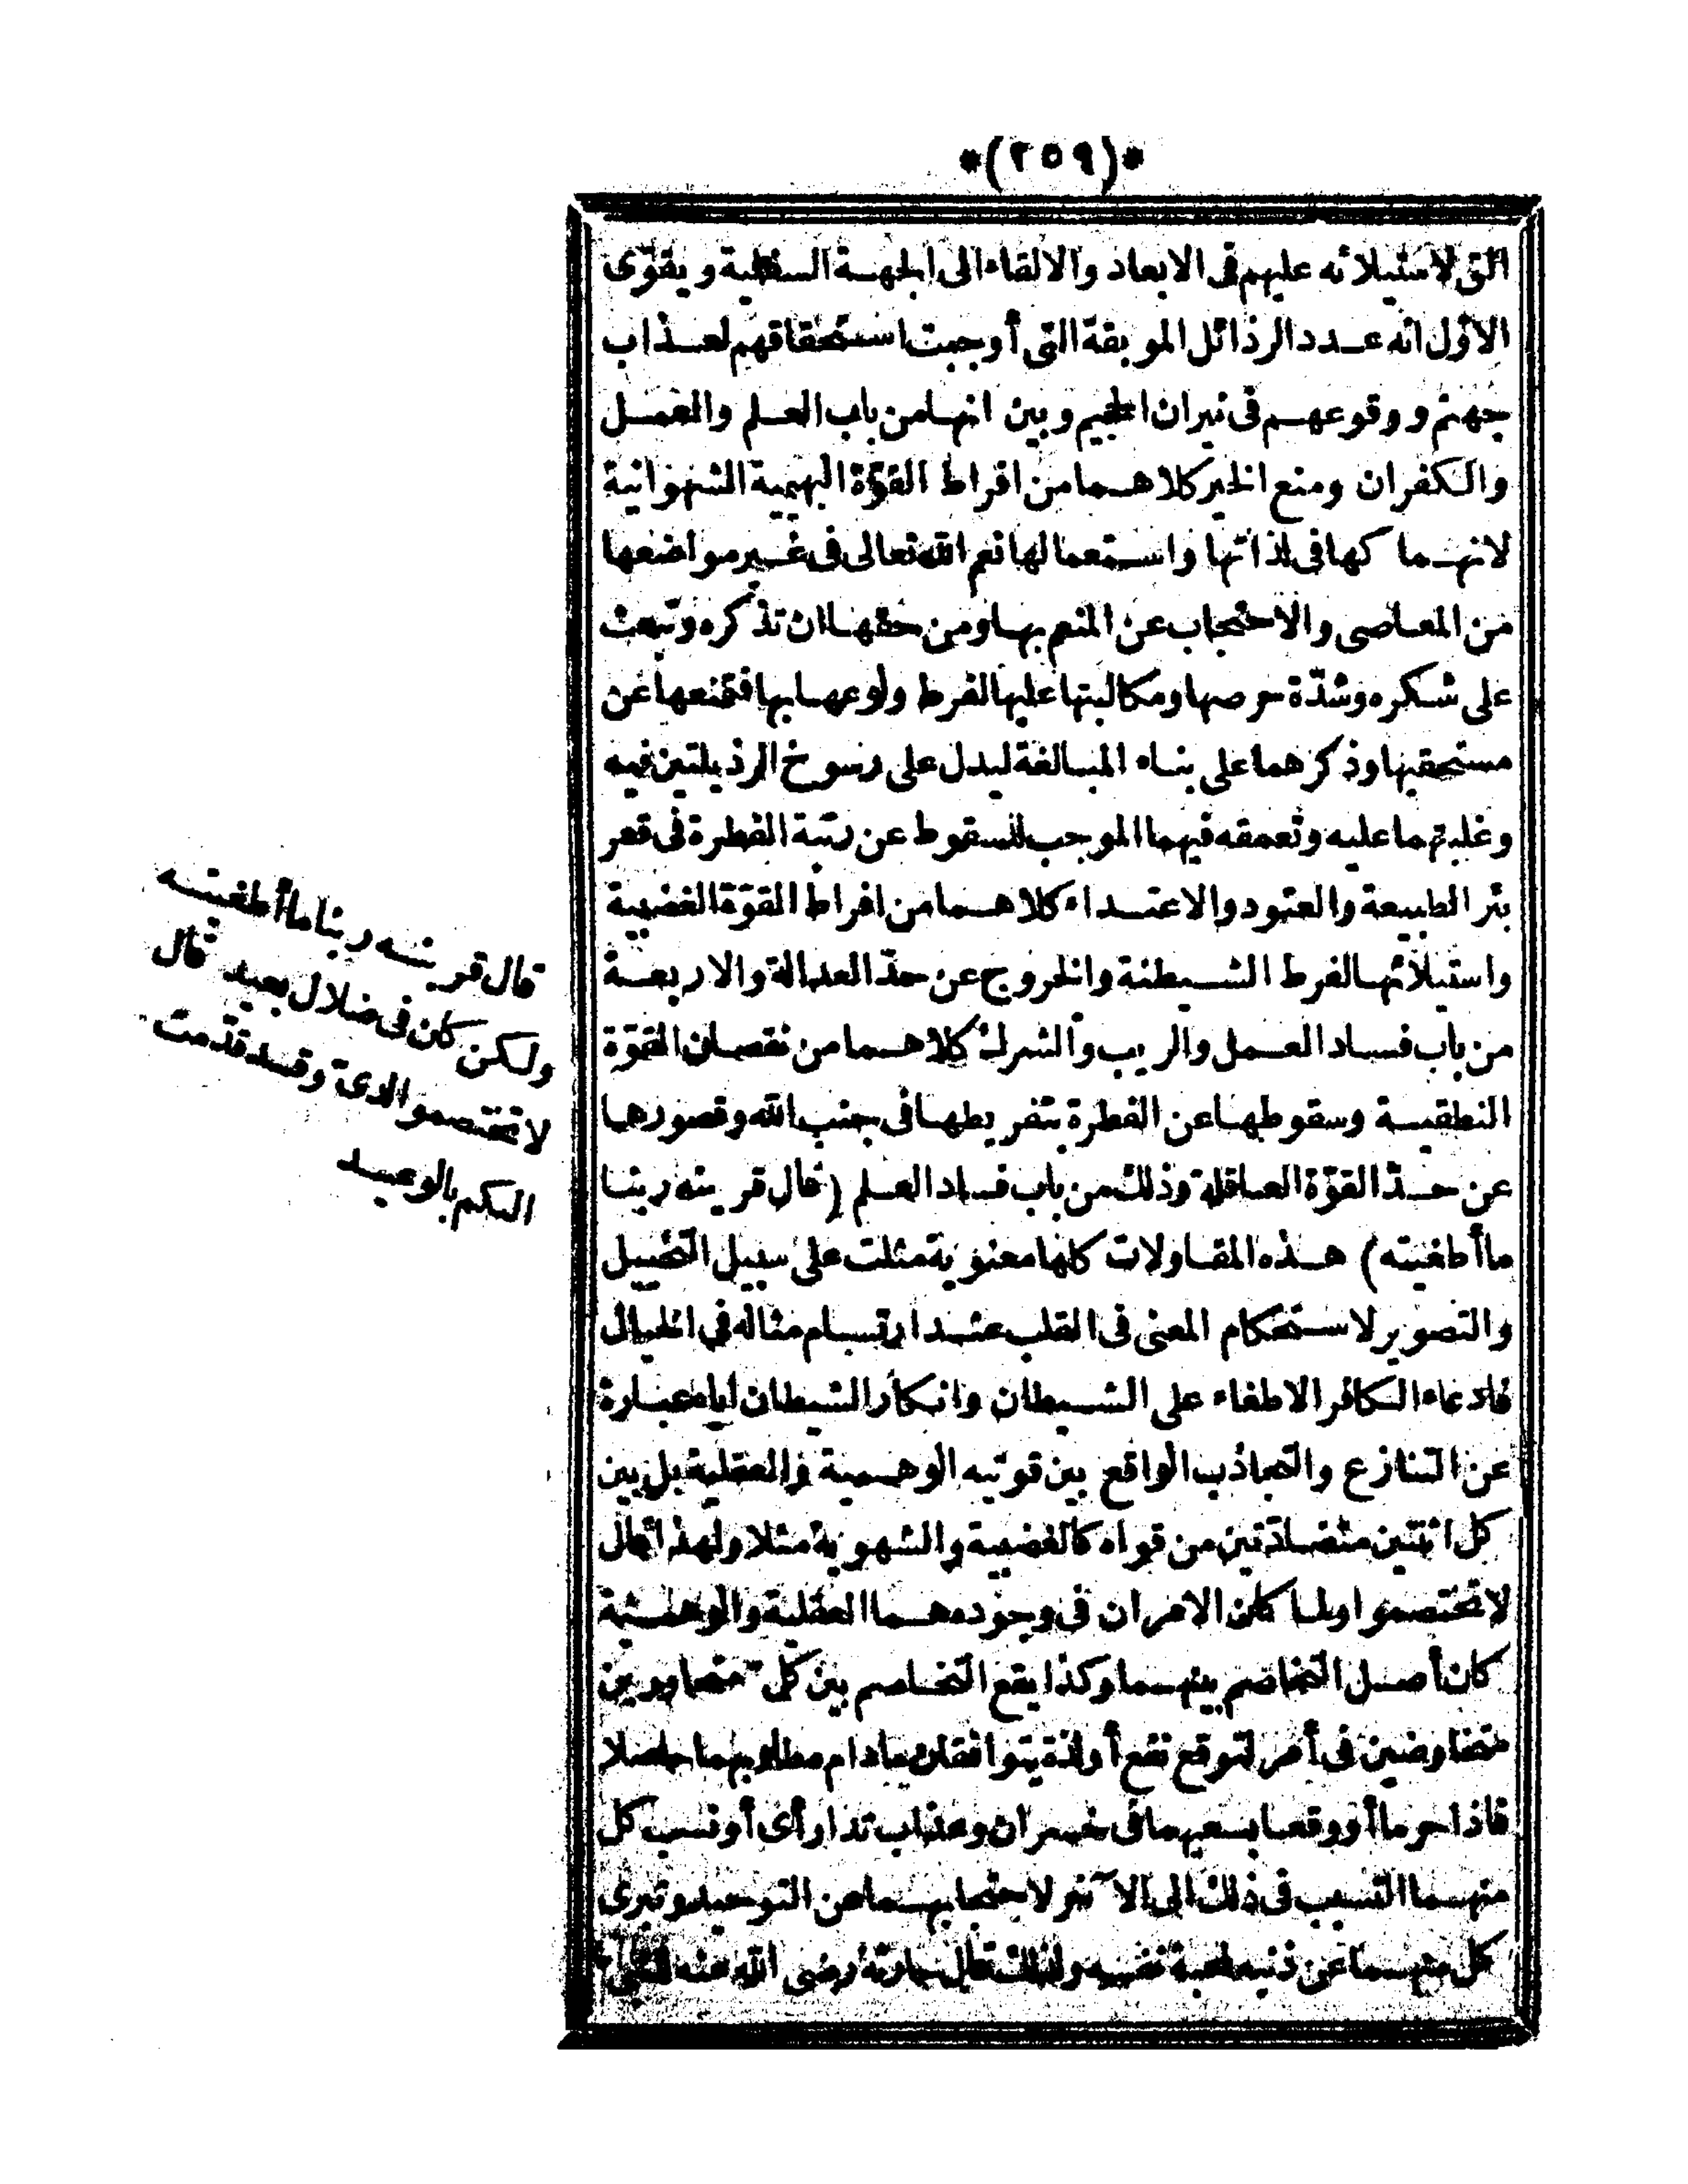 *(٢٥٩)*
ألق لاستيلائه عليهم فى الابعاد والالقاء الى الجهة السفلية ويقوّى
الاوّل انه عدد الرذائل الموبقة التى أوجبت استحقاقهم لعذاب
جهنم ووقوعهم فى نيران الجحيم وبين انها من باب العلم والعمل
والكفران ومنع الخير كلاهما من افراط القوّة البهيمية الشهوانية
لانهما كها فى لذاتها واستعمالها نعم الله تعالى فى غير مواضعها
من المعاصى والاحتجاب عن المنعم بها ومن حقها ان تذكره وتبعث
على شكره وشدّة حرصها ومكالبتها عليها لفرط ولوعها بها فتمنعها عن
مستحقيها وذكرهما على بناء المبالغة ليدل على رسوخ الرذيلتين فيه
وغلبتهما عليه وتعمقه فيهما الموجب للسقوط عن رتبة الفطرة فى قعر
بئر الطبيعة والعتود والاعتداء كلاهما من افراط القوّة الغضبية
واستيلائها لفرط الشيطنة والخروج عن حدّ العدالة والاربعة
من باب فساد العمل والريب والشرك كلاهما من نقصان القوّة
النطقية وسقوطها عن الفطرة بتفريطها فى جنب الله وقصورها
عن حدّ القوّة العاقلة وذلك من باب فساد العلم (قال قرينه ربنا
ما أطغيته) هذه المقاولات كلها معنوية مثلت على سبيل التخييل
والتصوير لاستحكام المعنى فى القلب عند ارتسام مثاله فى الخيال
فادعاء الكافر الاطغاء على الشيطان وانكار الشيطان اياه عبارة
عن التنازع والتجاذب الواقع بين قوتيه الوهمية والعقلية بل بين
كل اثنتين متضادّتين من قواه كالغضبية والشهوية مثلا ولهذا قال
لا تختصموا ولما كان الامران فى وجوده هما العقلية والوهمية
كان أصل التخاصم بينهما وكذا يقع التخاصم بين كل متحاورين
متفاوضين فى أمر لتوقع نفع أو لذة يتوافقان مادام مطلوبهما حاصلا
فاذا حرما أو وقعا بسعيهما فى خسران وعذاب تدارأى أو نسب كل
منهما التسبب فى ذلك الى الآخر لاحتجابهما عن التوحيد وتبرى
كل منهما عن ذنبه لمحبة نفسه ولذلك قال حارثة رضى الله عنه للنبىّ
قال قرينه ربنا ما أطغيته
ولكن كان فى ضلال بعيد قال
لا تختصموا لدىّ وقد قدّمت
اليكم بالوعيد